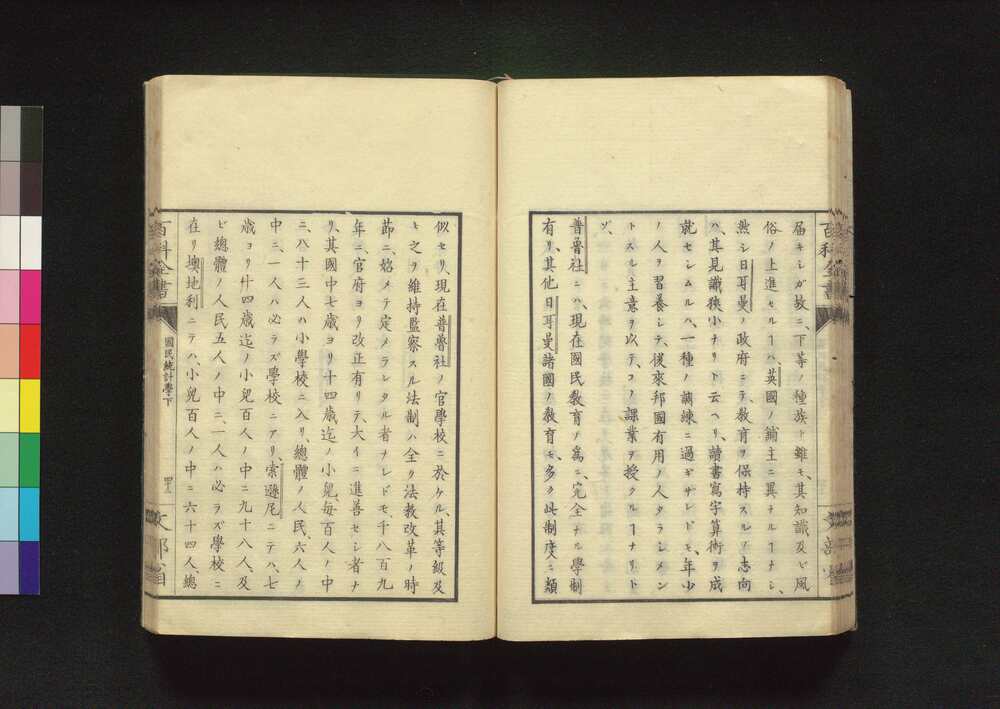 届キシガ故ニ、下等ノ種族ト雖モ、其知識及ビ風
俗ノ上進セルヿハ、英國ノ鋪主ニ異ナルヿナシ、
然シ日耳曼ノ政府ニテ、敎育ヲ保持スルノ志向
ハ、其見識狹小ナリト云ヘリ、讀書寫字算術ヲ成
就セシムルハ、一種ノ調練ニ過ギザレドモ、年少
ノ人ヲ習養シテ、後來邦國有用ノ人タラシメン
トスル主意ヲ以テ、コノ課業ヲ授クルヿナリト
ゾ、
普魯社ニハ、現在國民敎育ノ爲ニ、完全ナル學制
有リ、其他日耳曼諸國ノ敎育モ、多ク此制度ニ類
似セリ、現在普魯社ノ官學校ニ於ケル、其等級及
ヒ之ヲ維持監察スル法制ハ全ク法敎改革ノ時
節ニ、始メテ定メラレタル者ナレドモ、千八百九
年ニ、官府ヨリ改正有リテ、大イニ進善セシ者ナ
リ、其國中七歳ヨリ十四歳迄ノ小兒、每百人ノ中
ニ、八十三人ハ小學校ニ入リ、總體ノ人民、六人ノ
中ニ、一人ハ必ラズ學校ニアリ、索遜尼ニテハ、七
歳ヨリ廾四歳迄ノ小兒百人ノ中ニ九十八人、及
ビ總體ノ人民五人ノ中ニ、一人ハ必ラズ學校ニ
在リ、墺地利ニテハ、小兒百人ノ中ニ六十四人、總
百科全書
國民統計學下
文部省